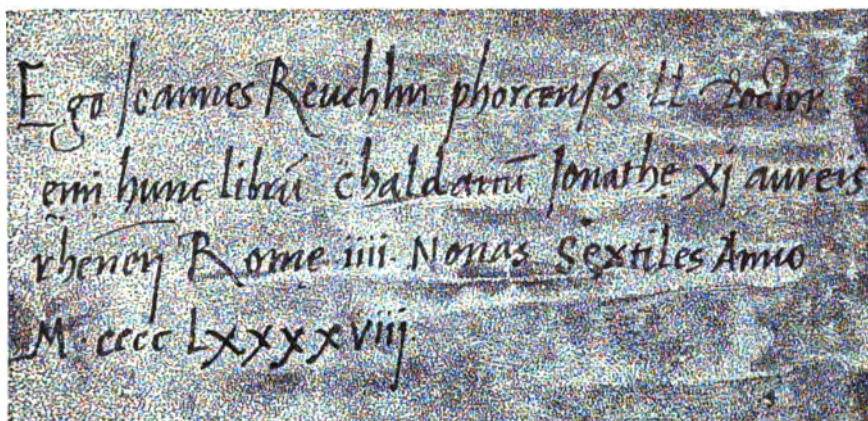 Ego Joannes Reuchlin phorcensis LL Doctor.
emi hunc librū chaldaicū Jonathę xj aureis
rhenēn Romę iiii. Nonas Sextiles Anno
M. cccc Lxxxxviij.